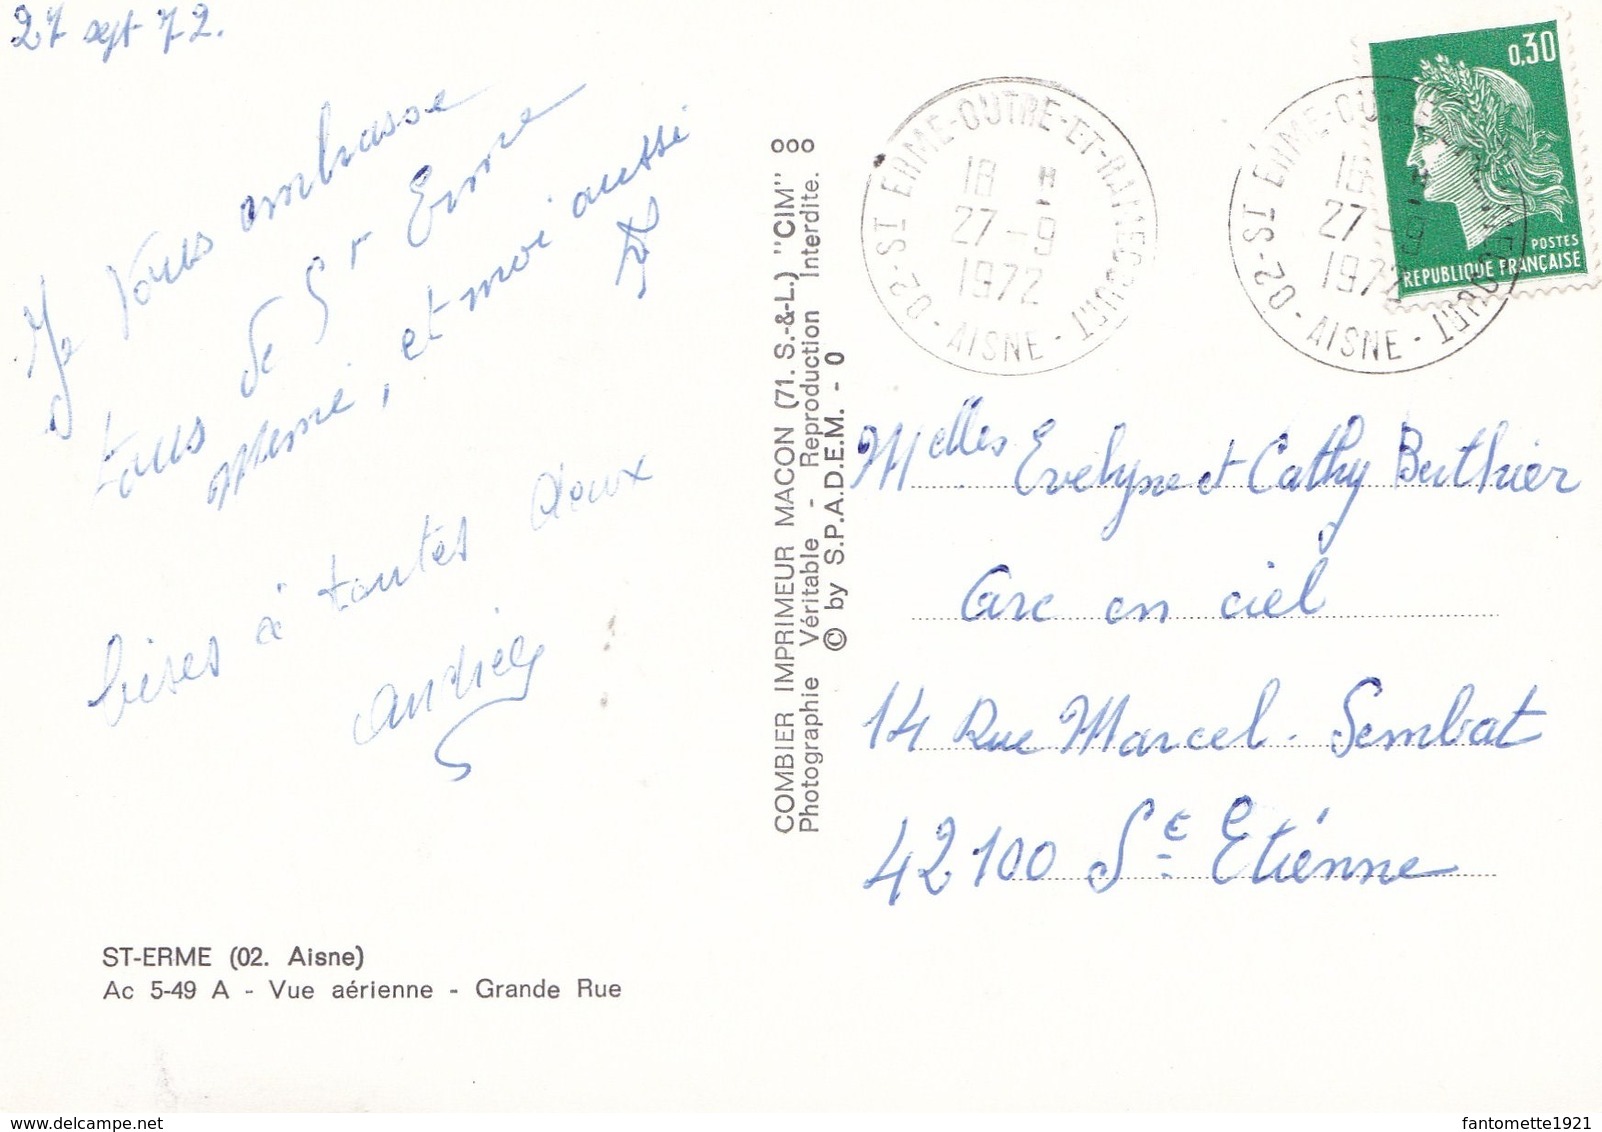 27 sept 72.
Je vous embrasse
tous de St Erme
mémé, et moi aussi
bises à toutes deux
COMBIER IMPRIMEUR MACON (71. S.-&-L.) "CIM"
Photographie Véritable - Reproduction Interdite.
© by S.P.A.D.E.M. - 0
02-ST ERME-OUTRE-ET-RAMECOURT
18 H
27-9
1972
AISNE
02-ST ERME-OUTRE-ET-RAMECOURT
18 H
27-9
1972
AISNE
0,30
POSTES
REPUBLIQUE FRANÇAISE
Melles Evelyne et Cathy Berthier
Arc en ciel
14 Rue Marcel Sembat
42100 St Etiénne
ST-ERME (02. Aisne)
Ac 5-49 A - Vue aérienne - Grande Rue
fantomette1921